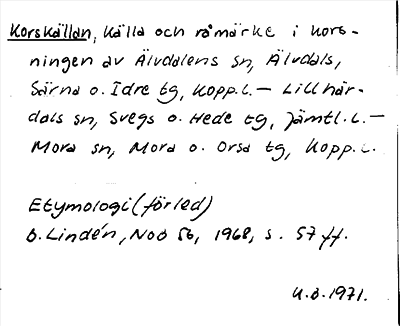 Korskällan, källa och råmärke i kors-
ningen av Älvdalens sn, Älvdals,
Särna o. Idre tg, Kopp.l. — Lillhär-
dals sn, Svegs o. Hede tg, Jämtl.l. —
Mora sn, Mora o. Orsa tg, Kopp.l.
Etymologi (förled)
B. Lindén, NoB 56, 1968, s. 57 ff.
U.B. 1971.